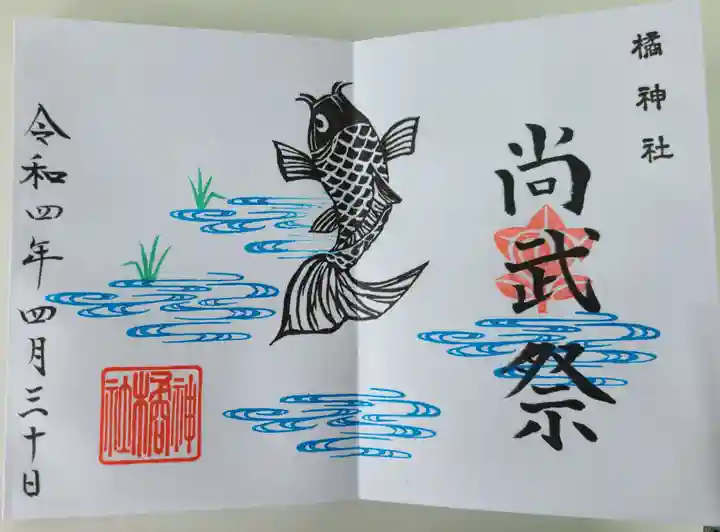 橘神社
尚武祭
令和四年四月三十日
橘神社